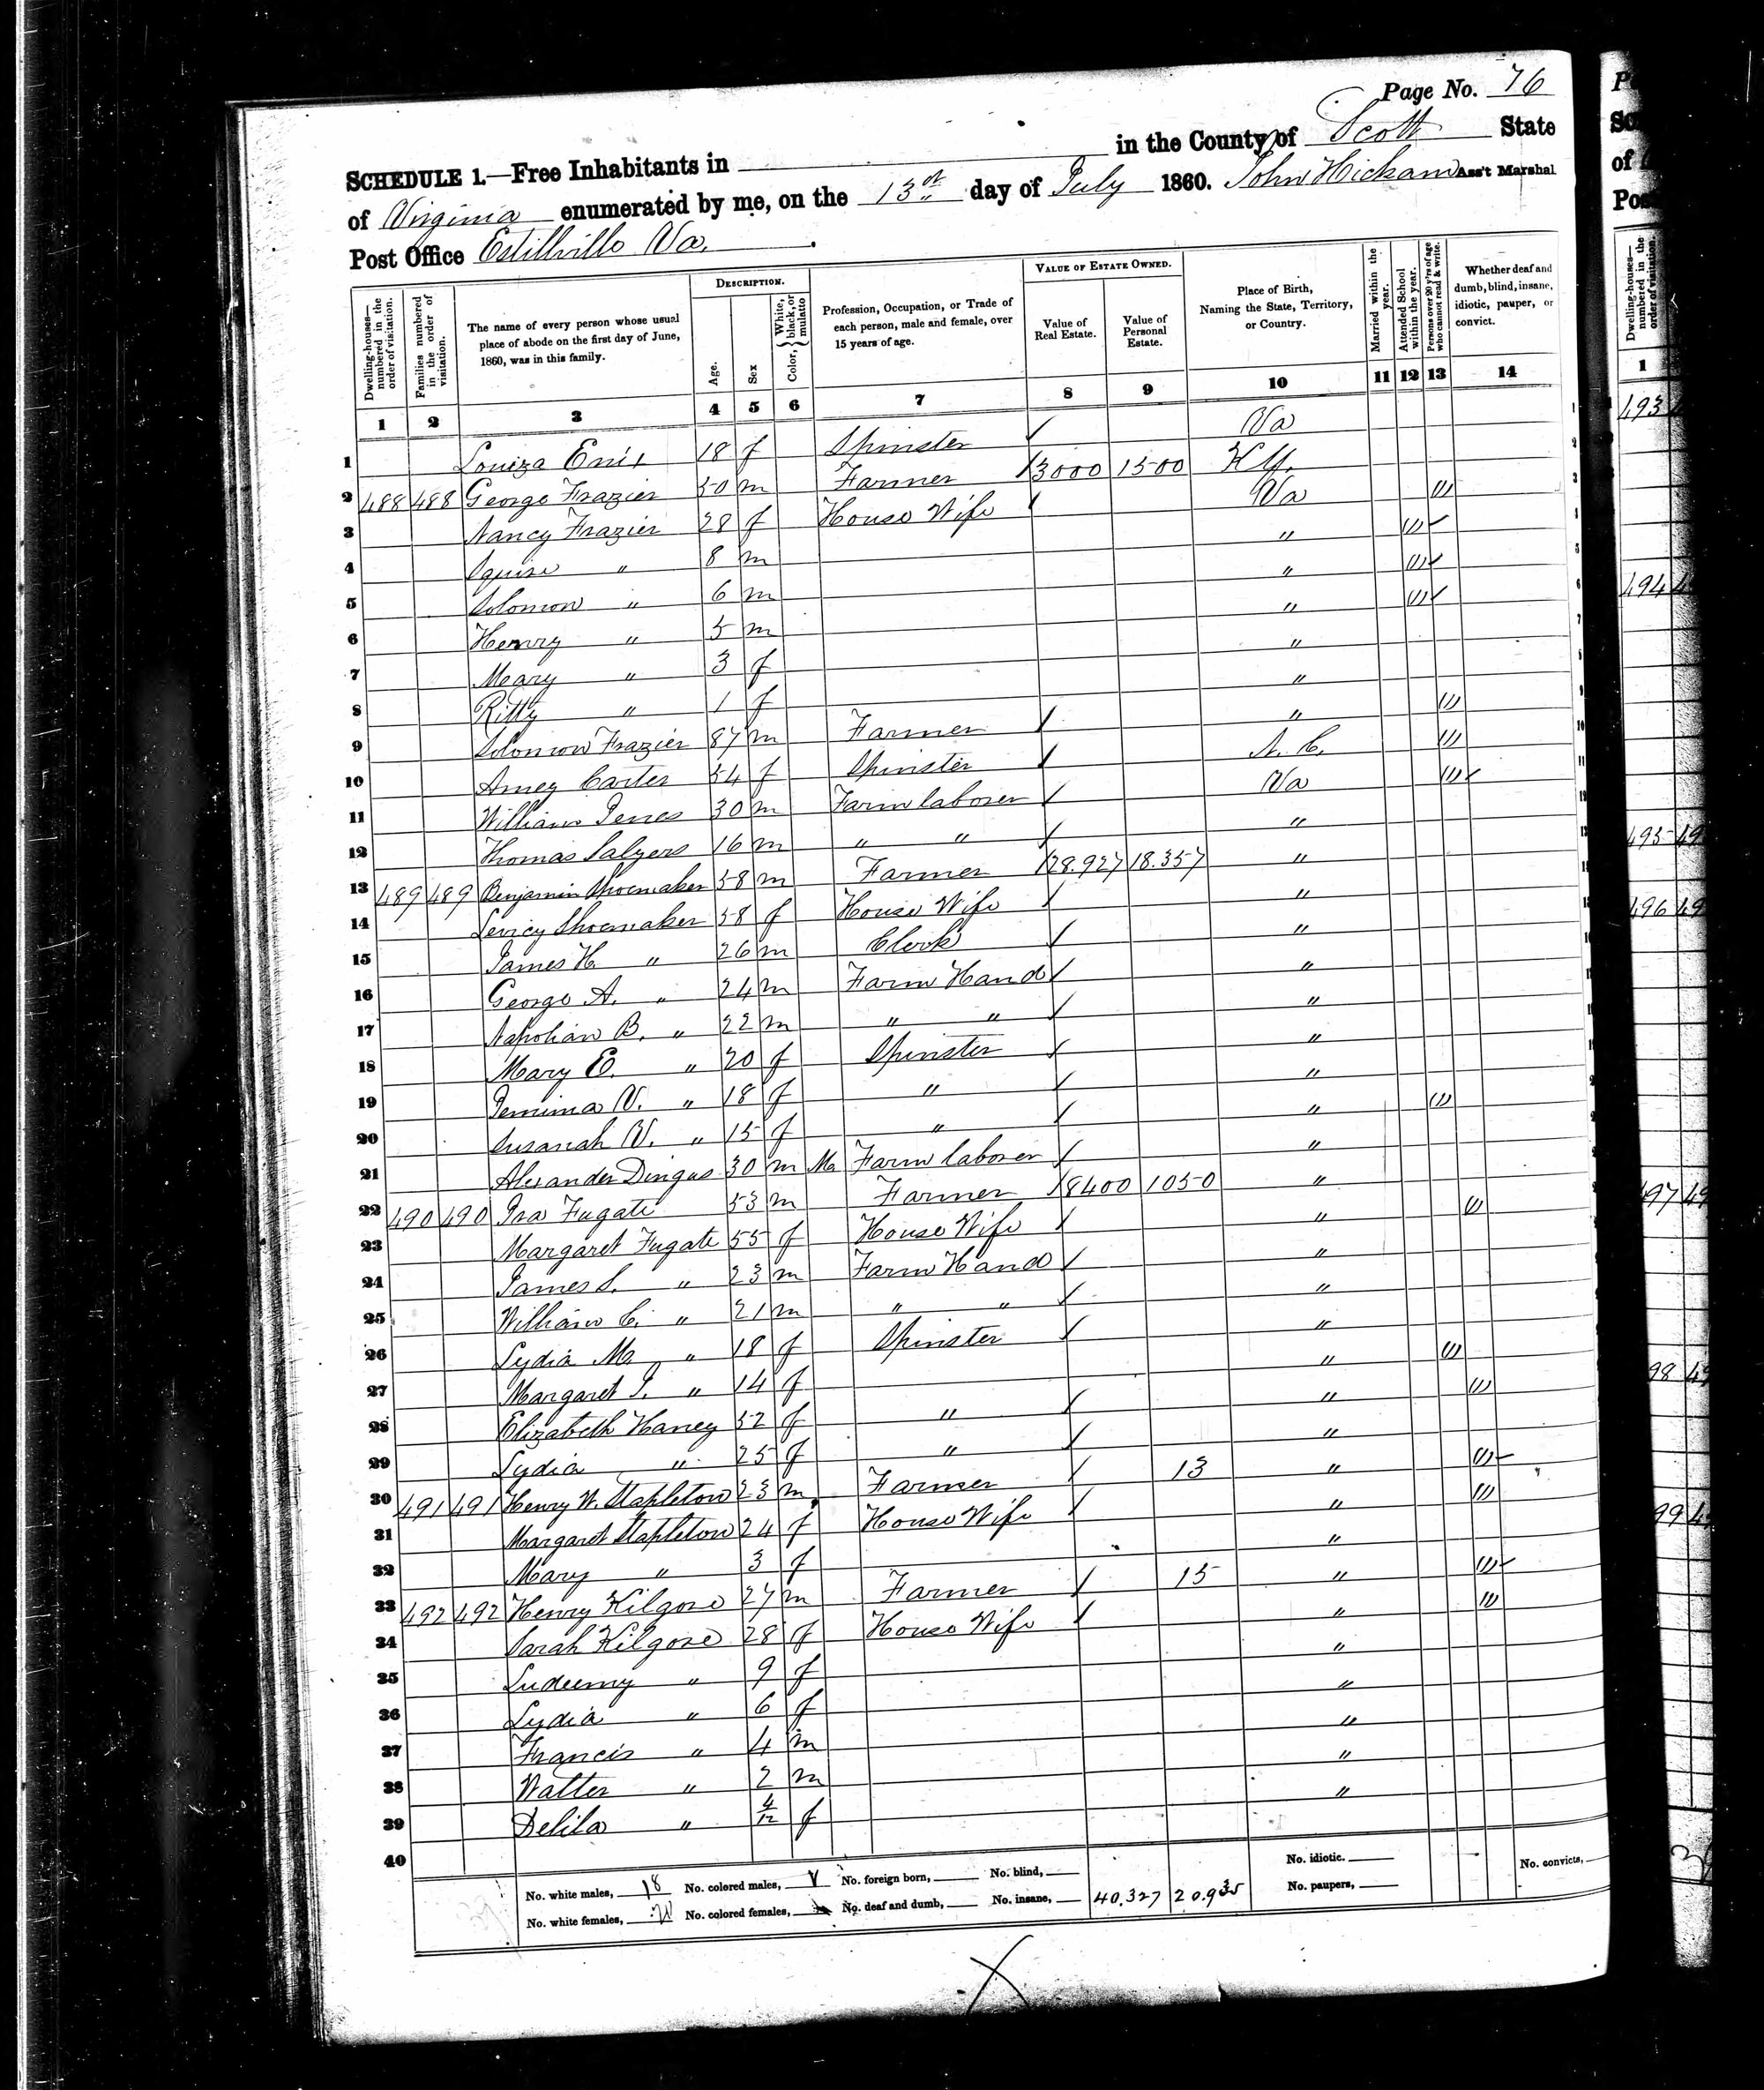 Page No. 76
SCHEDULE 1.—Free Inhabitants in in the County of Scott State
of Virginia enumerated by me, on the 13th day of July 1860. John Hickam Ass't Marshal
Post Office Estillville Va.
Dwelling-houses—numbered in the order of visitation.
Families numbered in the order of visitation.
The name of every person whose usual place of abode on the first day of June, 1860, was in this family.
DESCRIPTION.
Age.
Sex
Color, White, black, or mulatto
Profession, Occupation, or Trade of each person, male and female, over 15 years of age.
VALUE OF ESTATE OWNED.
Value of Real Estate.
Value of Personal Estate.
Place of Birth, Naming the State, Territory, or Country.
Married within the year.
Attended School within the year.
Persons over 20 y'rs of age who cannot read & write.
Whether deaf and dumb, blind, insane, idiotic, pauper, or convict.
1 2 3 4 5 6 7 8 9 10 11 12 13 14
1 Louiza 18 f Spinster / Va
2 488 488 George Frazier 50 m Farmer / 3000 1500 Ky.
3 Nancy Frazier 28 f House Wife / Va ///
4 Squire " 8 m " ///
5 Solomon " 6 m " ///
6 Henry " 5 m " ///
7 Mary " 3 f "
8 " 1 f "
9 Solomon Frazier 87 m Farmer / " ///
10 Amey Carter 54 f Spinster / N. C. ///
11 William 30 m Farm laborer / Va ///
12 Thomas Salyers 16 m " " / "
13 489 489 Benjamin Shoemaker 58 m Farmer / 28.927 18.357 "
14 Levicy Shoemaker 58 f House Wife / "
15 James H. " 26 m Clerk / "
16 George A. " 24 m Farm Hand / "
17 Napolian B. " 22 m " " / "
18 Mary E. " 20 f Spinster / "
19 Jemima V. " 18 f " / "
20 Susanah V. " 15 f " / " ///
21 Alexander Dingus 30 m M Farm laborer / "
22 490 490 Ira Fugate 53 m Farmer / 8400 1050 "
23 Margaret Fugate 55 f House Wife / " ///
24 James S. " 23 m Farm Hand / "
25 William C. " 21 m " " / "
26 Lydia M. " 18 f Spinster / "
27 Margaret J. " 14 f " ///
28 Elizabeth Haney 52 f " / " ///
29 Lydia " 25 f " / "
30 491 491 Henry W. Stapleton 23 m Farmer / 13 " ///
31 Margaret Stapleton 24 f House Wife / " ///
32 Mary " 3 f "
33 492 492 Henry Kilgore 27 m Farmer / 15 " ///
34 Sarah Kilgore 28 f House Wife / " ///
35 " 9 f "
36 Lydia " 6 f "
37 Francis " 4 m "
38 Walter " 2 m "
39 Delila " 4/12 f "
40
No. white males, 18 No. colored males, No. foreign born, No. blind, No. idiotic. No. convicts,
No. white females, No. colored females, No. deaf and dumb, No. insane, 40.327 20.935 No. paupers,
Dwelling-houses—numbered in the order of visitation.
1
493
494
495
496
497
98
99